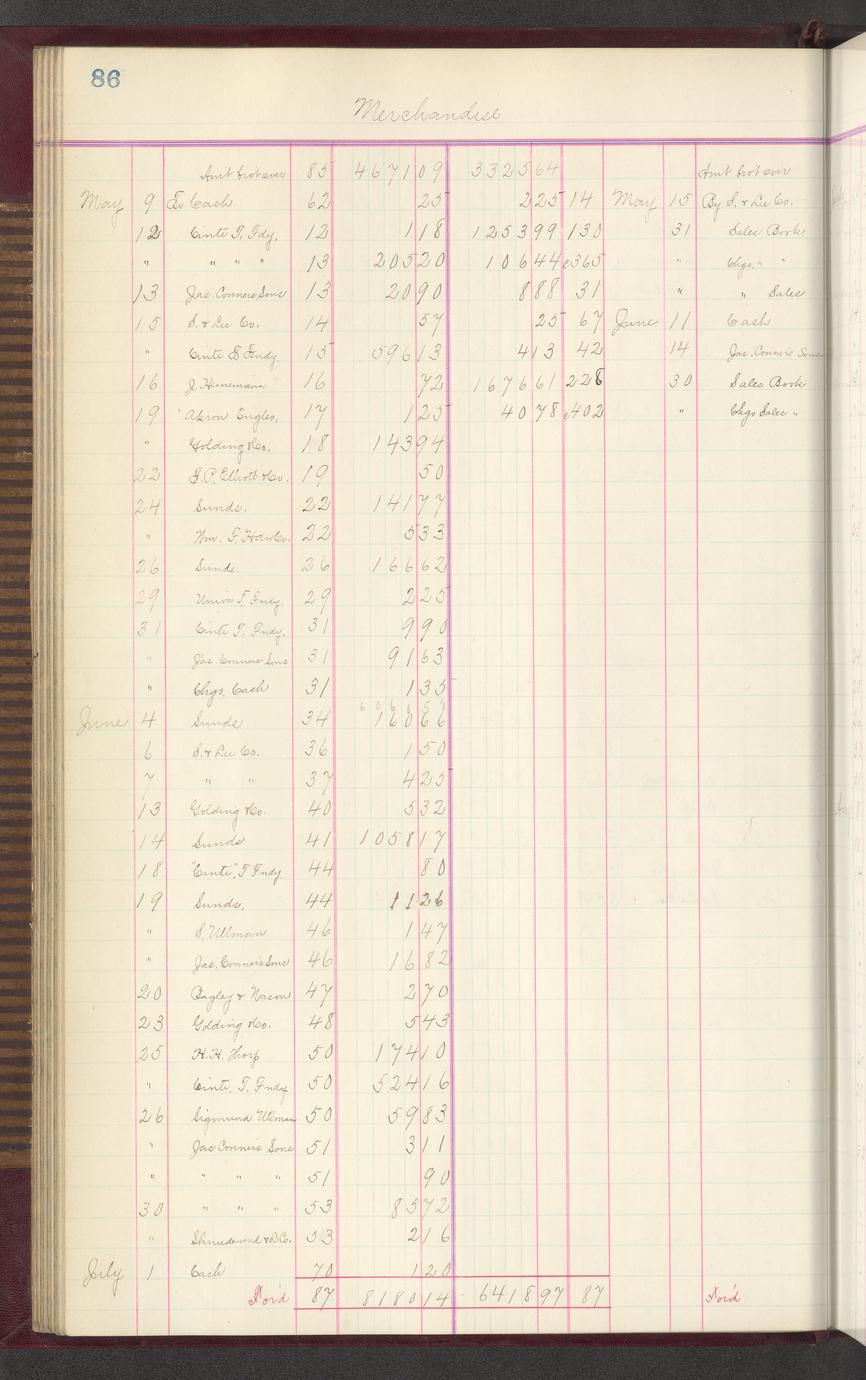 86
Merchandise
Am't brot over 85 4671 09 3325 64 Am't brot over
May 9 To Cash 62 25 2 25 14 May 15 By S. & Lee Co.
12 Cinti T. Fdy. 12 1 18 1253 99 130 31 Sales Book
" " " " 13 205 20 106 44 c365 " Chgs. " "
13 Jas. Conners Sons 13 20 90 8 88 31 " " Sales
15 S. & Lee Co. 14 57 25 67 June 11 Cash
" Cinti T Fndy. 15 596 13 4 13 42 14 Jas. Conner's Sons
16 J. Hinemann 16 72 1676 61 228 30 Sales Book
19 Akron Engles. 17 1 25 40 78 c402 " Chgs Sales "
" Golding & Co. 18 143 94
22 F. P. Elliott & Co. 19 50
24 Sunds. 22 141 77
" Wm. F. Hdw Co. 22 5 33
26 Sunds. 26 166 62
29 Union T. Fndy. 29 2 25
31 Cinti T. Fndy. 31 9 90
" Jas. Conners Sons 31 91 63
" Chgs. Cash 31 1 35
6060 58
June 4 Sunds 34 160 66
6 S. & Lee Co. 36 1 50
7 " " 37 4 25
13 Golding & Co. 40 5 32
14 Sunds 41 1058 17
18 "Cinti", T Fndy 44 80
19 Sunds. 44 11 26
" S. Ullman 46 1 47
" Jas. Conner's Sons 46 16 82
20 Bagley & Nason 47 2 70
23 Golding & Co. 48 5 43
25 H. H. Thorp 50 174 10
" Cinti. T. Fndy 50 524 16
26 Sigmund Ullman 50 59 83
" Jas Conner's Sons 51 3 11
" " " " 51 90
30 " " " 53 85 72
" & B. Co. 53 2 16
July 1 Cash 70 1 20
For'd 87 8180 14 6418 97 87 For'd